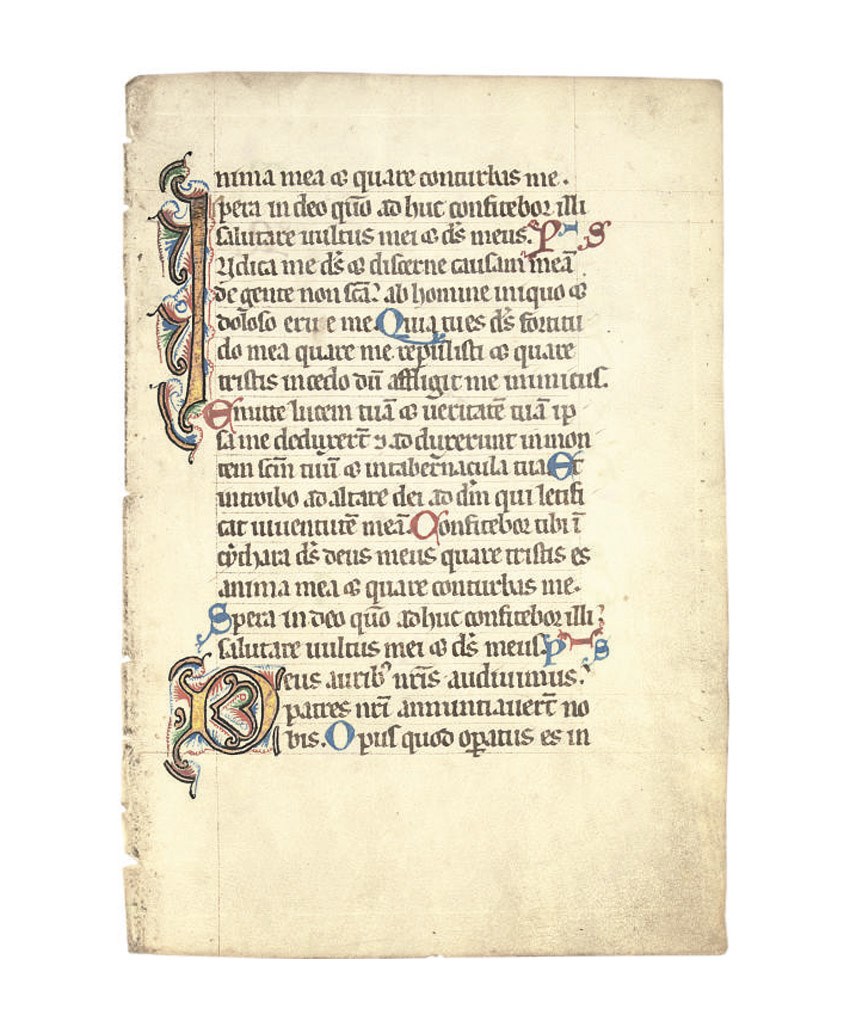 nima mea & quare conturbas me.
Spera in deo qūo ad huc confitebor illi
salutare uultus mei & d̄s meus. Ps
IUdica me d̄s & discerne causam meā
de gente non scā: ab homine iniquo &
doloso erue me. Quia tu es d̄s fortitu
do mea quare me repulisti & quare
tristis incedo dū affligit me inimicus.
Emitte lucem tuā & ueritatē tuā ip
sa me deduxerūt & adduxerunt in mon
tem scm̄ tuū & in tabernacula tua. Et
introibo ad altare dei ad dm̄ qui letifi
cat iuuentutē meā. Confitebor tibi ī
cythara d̄s deus meus quare tristis es
anima mea & quare conturbas me.
Spera in deo qūo adhuc confitebor illi:
salutare uultus mei & d̄s meus. Ps
Deus aurib; nr̄is audiuimus:
patres nr̄i annuntiauerūt no
bis. Opus quod opatus es in